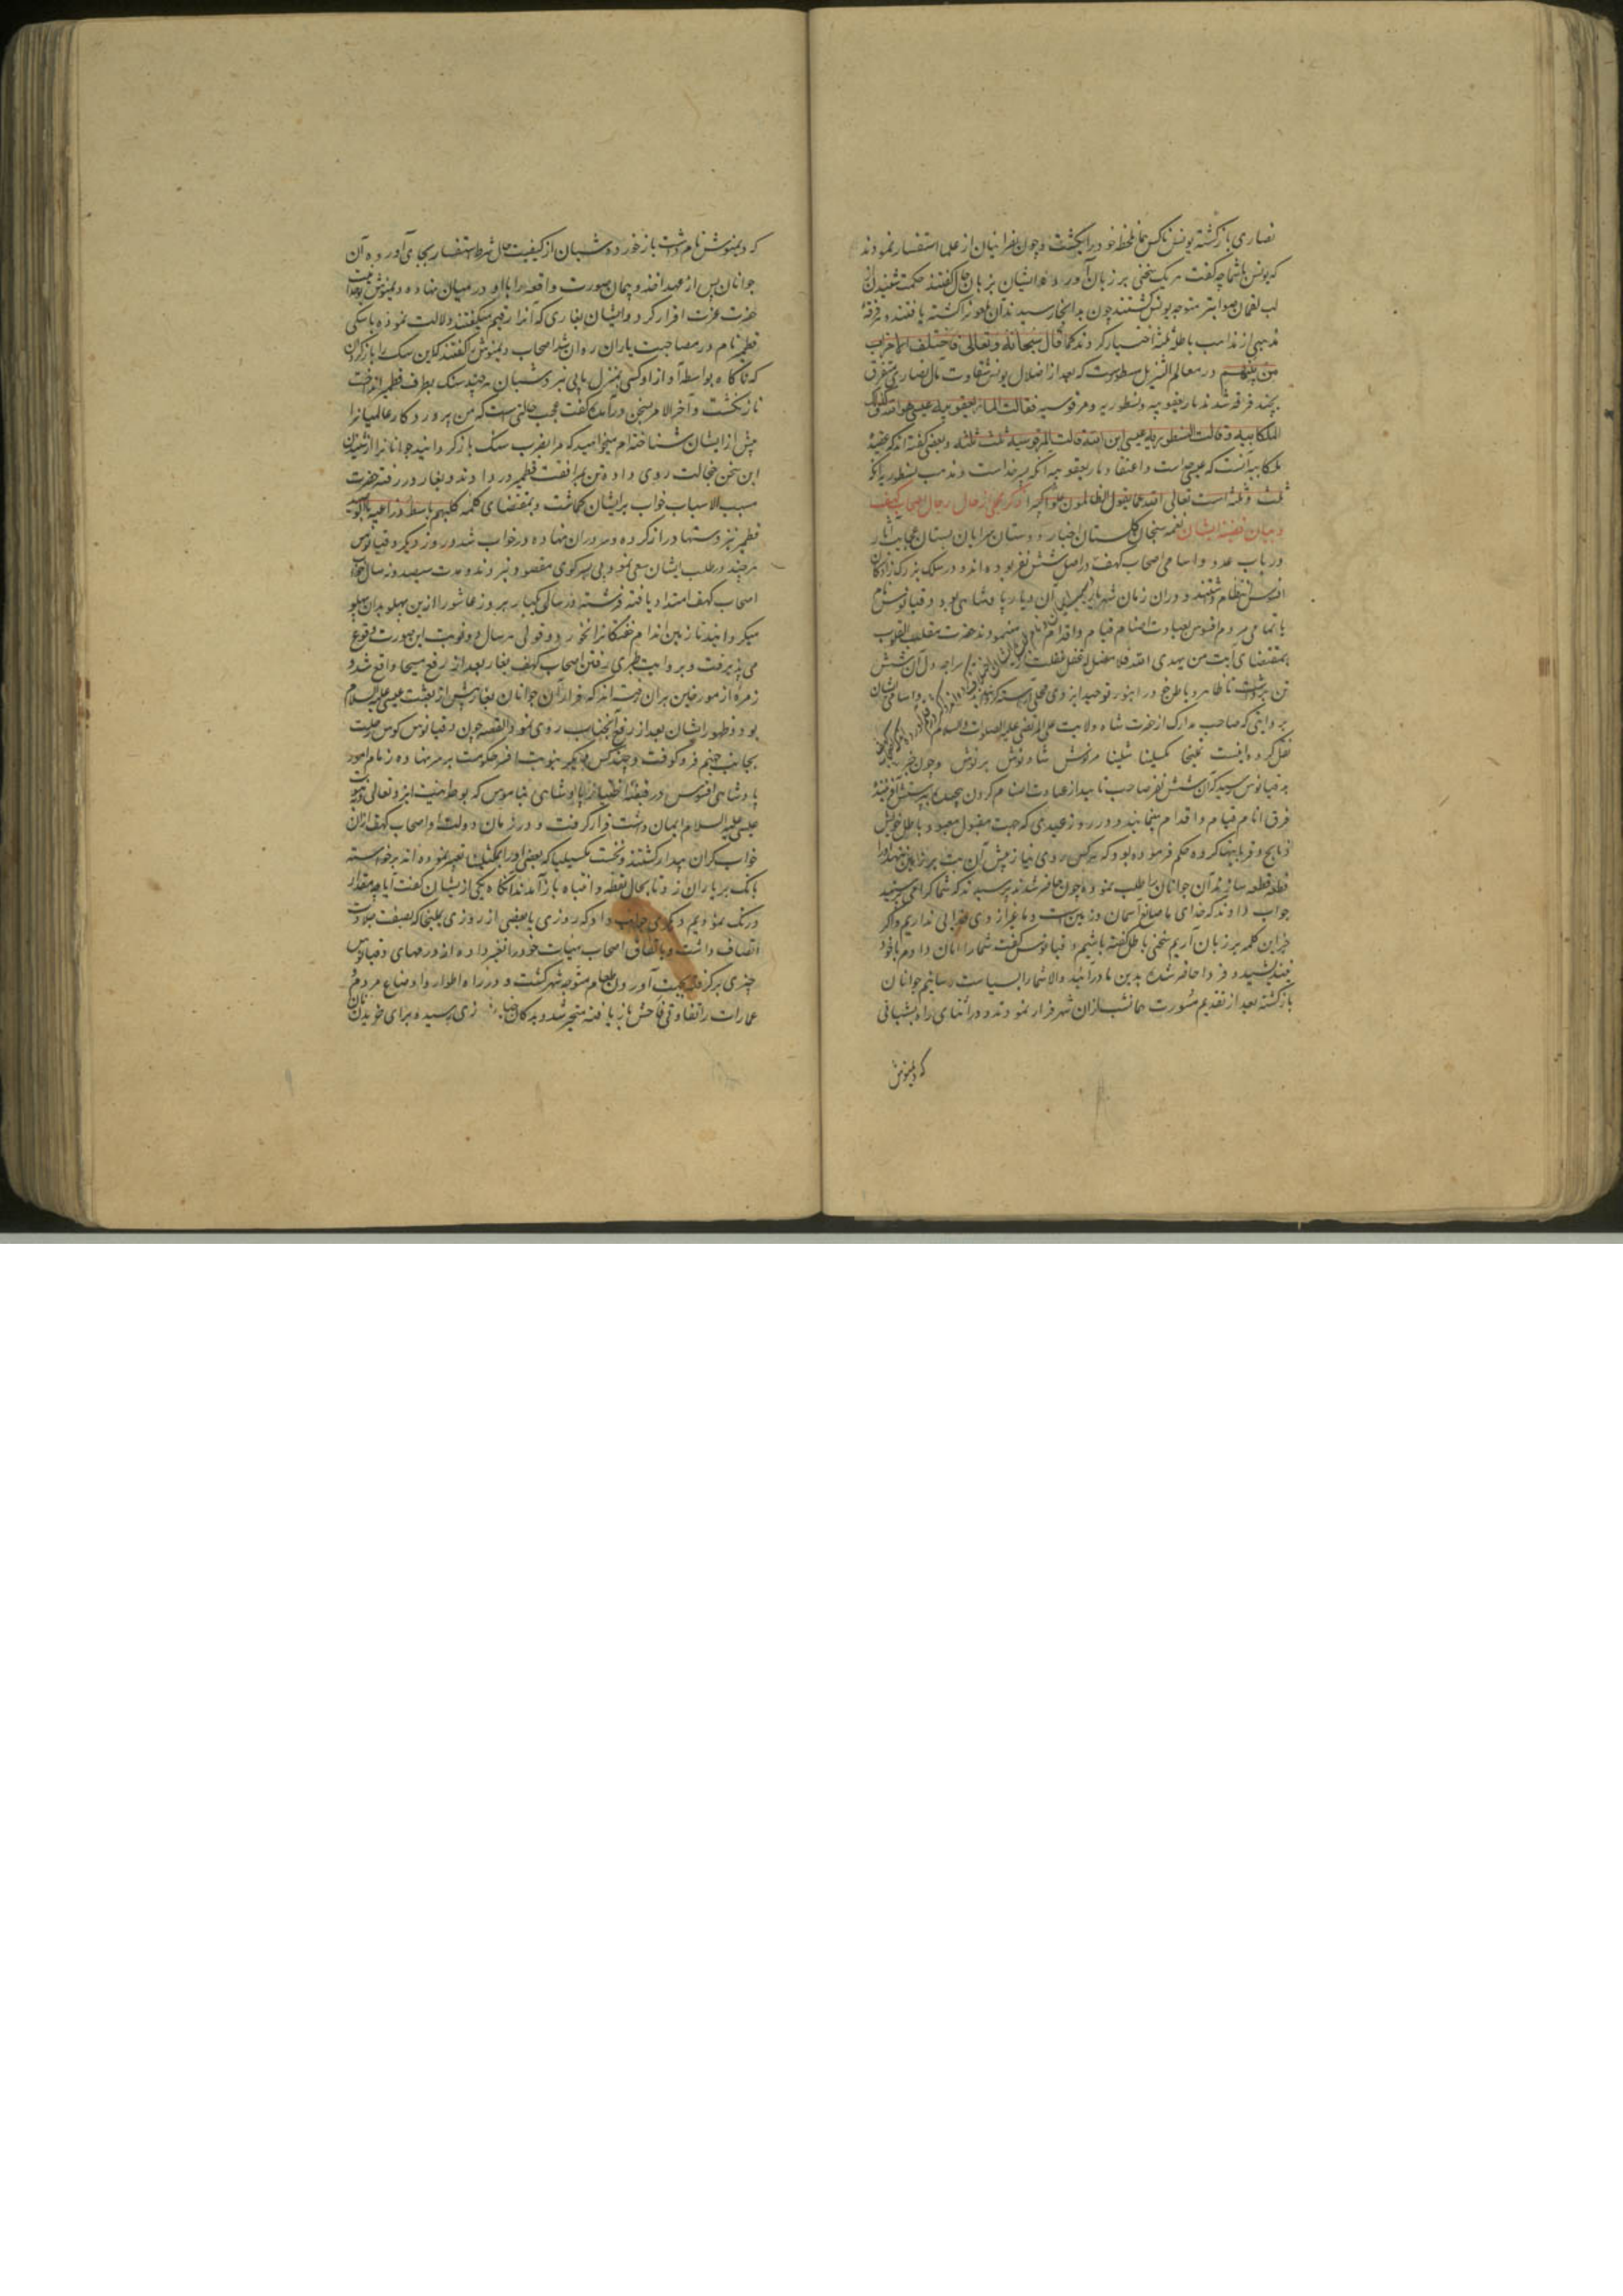 نصاری بازگشته یونس ناکس همان لحظه خود را بکشت و چون نصرانیان از علما استفسار نمودند
که یونس با شما چه گفت هر یک سخنی بر زبان آوردند
متوجه یونس گشتند چون بدانجا رسیدند آن ملعون را کشته یافتند و هر فرقهٔ
مذهبی از مذاهب باطله ثلثه اختیار کردند کما قال سبحانه و تعالی فاختلف الاحزاب
من بینهم در معالم التنزیل مسطورست که بعد از اضلال یونس شقاوت مآل نصاری متفرق
بچند فرقه شدند یعقوبیه و نسطوریه و مرقوسیه فقالت الیعقوبیه عیسی هو الله و کذلک
الملکاییه و قالت النسطوریه عیسی ابن الله و قالت المرقوسیه ثالث ثلثه و بعضی گفته‌اند که عقیدهٔ
ملکاییه آنست که عیسی خداست و اعتقاد یعقوبیه آنکه پسر خداست و مذهب نسطوریه آنکه
ثالث ثلثه است تعالی الله عما یقول الظالمون علوا کبیرا ذکر مجملی از حال رجال اصحاب کهف
و بیان قصه ایشان نغمه سنجان گلستان اخبار و دوستان سرایان بستان عجایب آثار
در باب عدد و اسامی اصحاب کهف در اصل شش نفر بوده‌اند و در سلک بزرگ زادگان
افسوس انتظام داشتند و در آن زمان آن دیار پادشاهی بود دقیانوس نام
با تمامی مردم افسوس بعبادت اصنام قیام و اقدام می‌نمودند حضرت مقلب القلوب
بمقتضای آیت من یهدی الله فلا مضل له قفل غفلت از دل آن شش
تن برداشت تا ظاهر و باطن خود را بنور توحید ایزدی و اسامی ایشان
بروایتی که صاحب مدارک از حضرت شاه ولایت علی المرتضی علیه الصلوات والسلام
نقل کرده اینست یملیخا مکسلینا مثلینا مرنوش شاذنوش برنوش و چون خبر
بدقیانوس رسید که آن شش نفر صاحب تایید از عبادت اصنام گردن پیچیده بپرستش آفرینندهٔ
فرق انام قیام و اقدام می‌نمایند و در روز عیدی که جهت مقبول معبود باطل خویش
ذبایح و قربانیها کرده حکم فرموده بود که هرکس روی نیاز پیش آن بت بر خاک ننهد او را
قطعه قطعه سازند آن جوانان را طلب نمود و چون حاضر شدند پرسید که شما کرا می‌پرستید
جواب دادند که خدای ما صانع آسمان و زمین است و ما غیر از وی خدایی نداریم و اگر
جز این کلمه بر زبان آریم سخنی باطل گفته باشیم دقیانوس گفت شما را امان دادم با خود
بیندیشید و فردا حاضر شده بدین ما درآئید والا شما را بسیاست رسانیم جوانان
بازگشته بعد از تقدیم مشورت همان شب از آن شهر فرار نمودند و در اثنای راه بشبانی
که دیمنوش
که دیمنوش نام داشت باز خوردند و شبان از کیفیت حال شرط استفسار بجای آورده آن
جوانان پس از عهد اخذ و پیمان صورت واقعه را با او در میان نهادند و دیمنوش
حضرت عزت اقرار کرد و ایشان بغاری که آنرا رقیم میگفتند دلالت نموده با سگی
قطمیر نام در مصاحبت یاران روان شد اصحاب دیمنوش را گفتند که این سگ را بازگردان
که ناگاه بواسطه آواز او کسی بمنزل ما پی نبرد شبان هر چند سنگ بطرف قطمیر انداخت
بازنگشت و آخر الامر بسخن درآمده گفت عجب حالتی است که من پروردگار عالمیان را
پیش از ایشان شناخته‌ام میخواهید که مرا بضرب سنگ بازگردانید جوانان را از شنیدن
این سخن خجالت روی داده تن بمرافقت قطمیر در دادند و بغار در رفته حضرت
مسبب الاسباب خواب بر ایشان گماشت و بمقتضای کلمه کلبهم باسط ذراعیه بالوصید
قطمیر نیز دستها دراز کرده و سر بر آن نهاده در خواب شد و روز دیگر دقیانوس
هر چند در طلب ایشان سعی نمود پی بسر کوی مقصود نبردند و مدت سیصد و نه سال خواب
اصحاب کهف امتداد یافته فرشته در سالی یکبار بروز عاشورا از این پهلو بدان پهلو
میگردانید تا زمین اندام خفتگان را نخورد و بقولی هر سال دو نوبت این صورت وقوع
می‌پذیرفت و بروایت طبری رفتن اصحاب کهف بغار بعد از رفع مسیحا واقع شد و
زمرهٔ از مورخین بر آن رفته‌اند که فرار آن جوانان بغار پیش از بعثت عیسی علیه السلام
بود و ظهور ایشان بعد از رفع آنجناب روی نمود القصه چون دقیانوس کوس رحلت
بجانب جهنم فرو کوفت و چند کس دیگر بنوبت افسر حکومت بر سر نهاده زمام امور
پادشاهی افسوس در قبضه اختیار پادشاهی که بوحدانیت ایزد تعالی و نبوت
عیسی علیه السلام ایمان داشت قرار گرفت و در زمان دولت او اصحاب کهف از آن
خواب گران بیدار گشتند و نخست مکسلینا که بعضی او را تعبیر نموده‌اند برخاسته
بانگ بر یاران زد تا بحال یقظه و انتباه باز آمدند آنگاه یکی از ایشان گفت آیا چه مقدار
درنگ نمودیم دیگری جواب داد که روزی یا بعضی از روزی یملیخا که بصفت جلادت
اتصاف داشت و باتفاق اصحاب هیات خود را تغییر داده از درمهای دقیانوس
چیزی برگرفته بجهت آوردن طعام متوجه شهر گشت و در راه اطوار و اوضاع مردم و
عمارات را تفاوتی فاحش باز یافته متحیر شد و بدکان خبازی رسیده برای خریدن نان